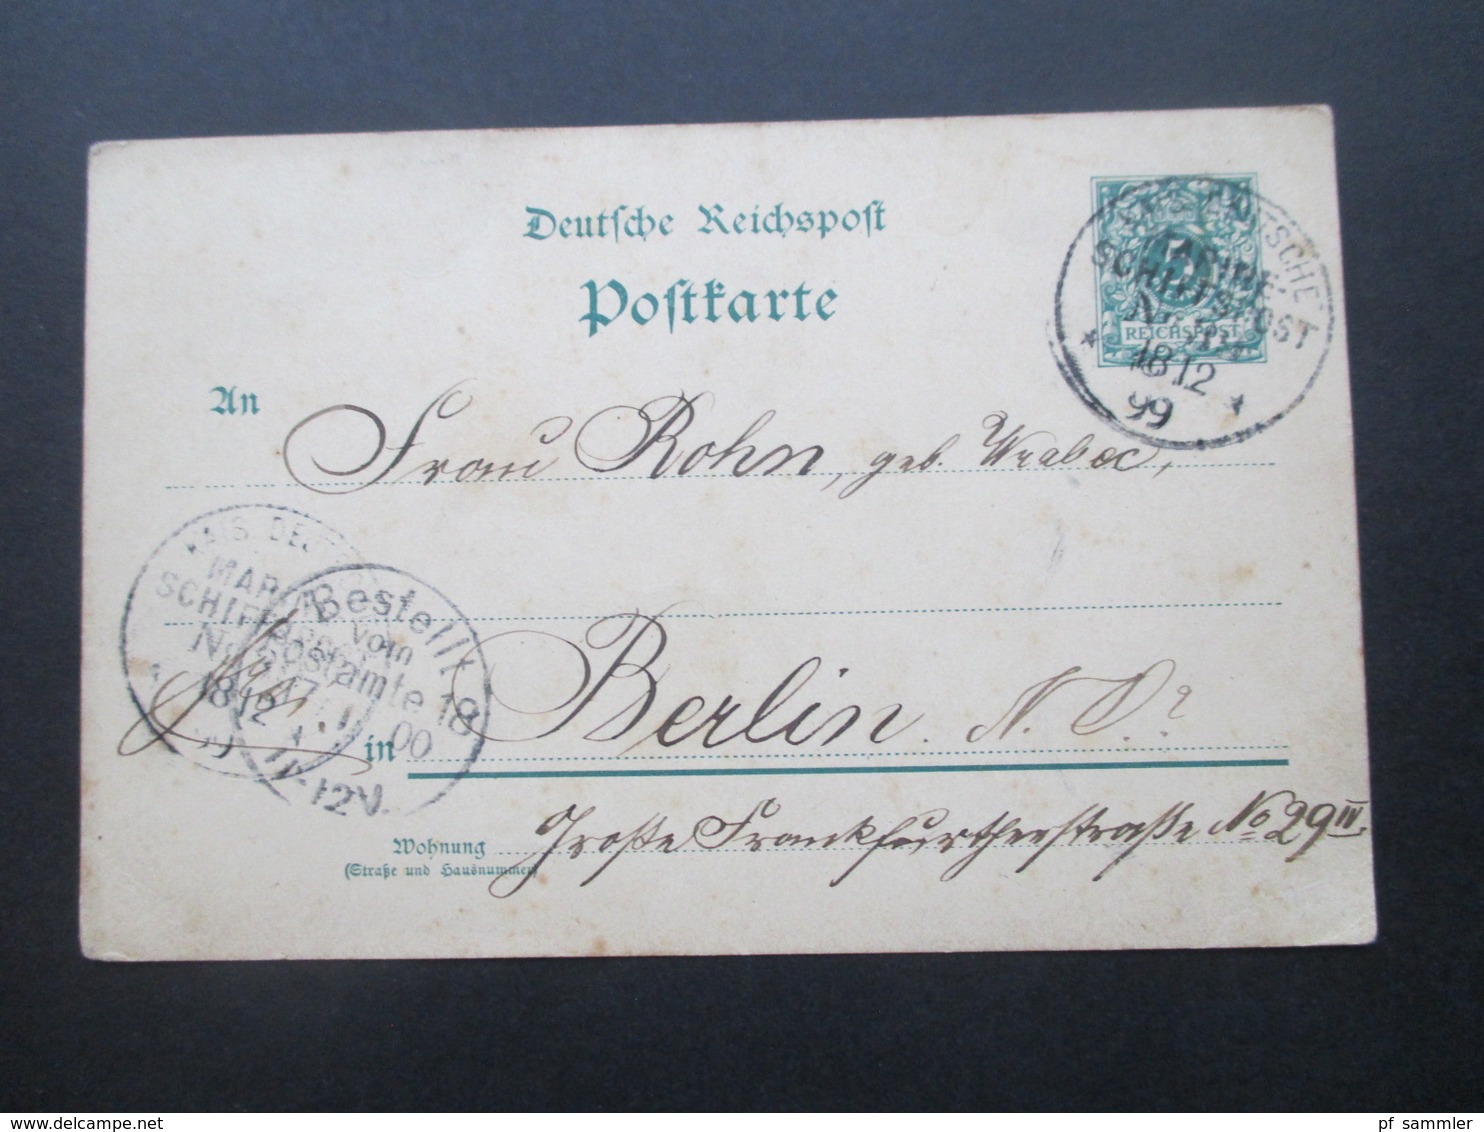 Deutsche Reichspost
Postkarte
KAIS. DEUTSCHE
MARINE-
SCHIFFSPOST
No
18 12
99
REICHSPOST
An
Frau Rohn, geb. Wrabec,
KAIS. DEUTSCHE
MARINE-
SCHIFFSPOST
No
18 12
99
Bestellt
vom
Postamte 18
1 00
11-12V.
in Berlin. N. O.
Wohnung
(Straße und Hausnummer)
Große Frankfurtherstraße No 29 IV.
pf_sammler